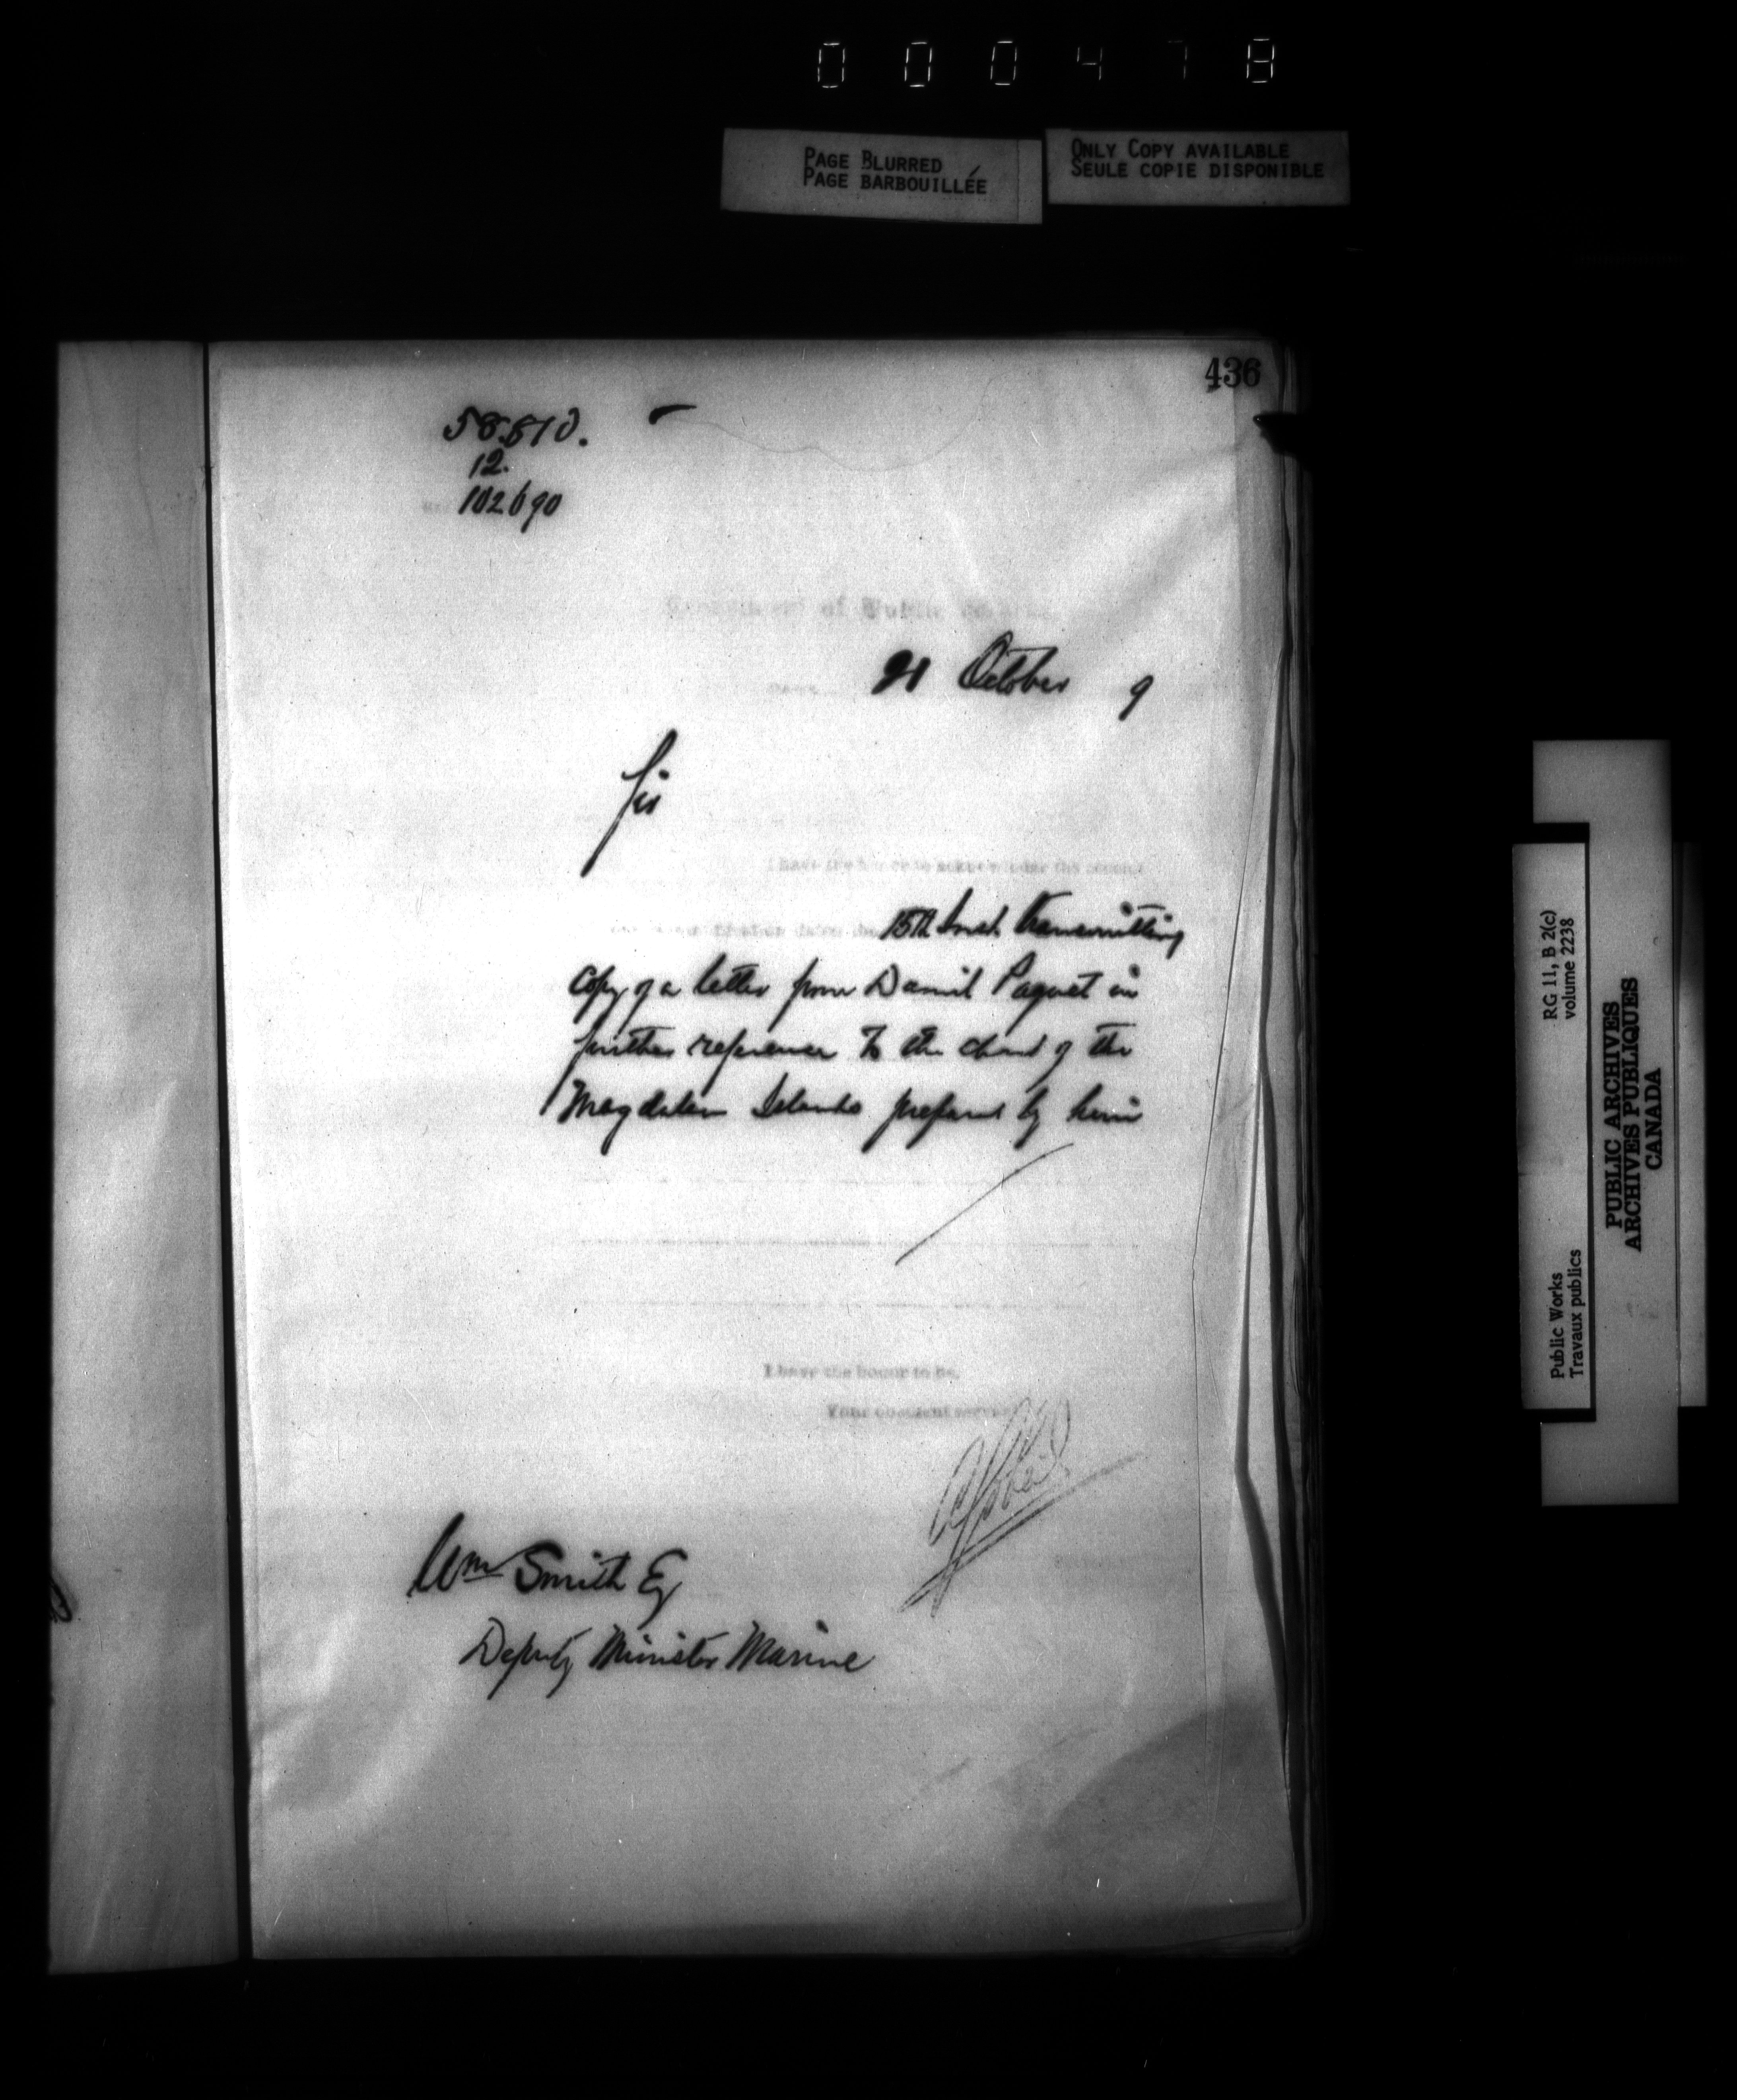 000478
PAGE BLURRED
PAGE BARBOUILLÉE
ONLY COPY AVAILABLE
SEULE COPIE DISPONIBLE
436
58510.
12.
102690
Department of Public Works
21 October 9
Sir
I have the honor to acknowledge the receipt
15th Inst. transmitting
Copy of a letter from Damil Paquet in
further reference to the chart of the
Magdalen Islands prepared by him
I have the honor to be,
Your obedient servant
Wm Smith Eq
Deputy Minister Marine
RG 11, B 2(c)
volume 2238
Public Works
Travaux publics
PUBLIC ARCHIVES
ARCHIVES PUBLIQUES
CANADA